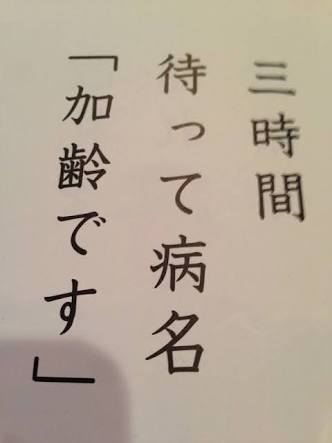 三時間
待って病名
「加齢です」